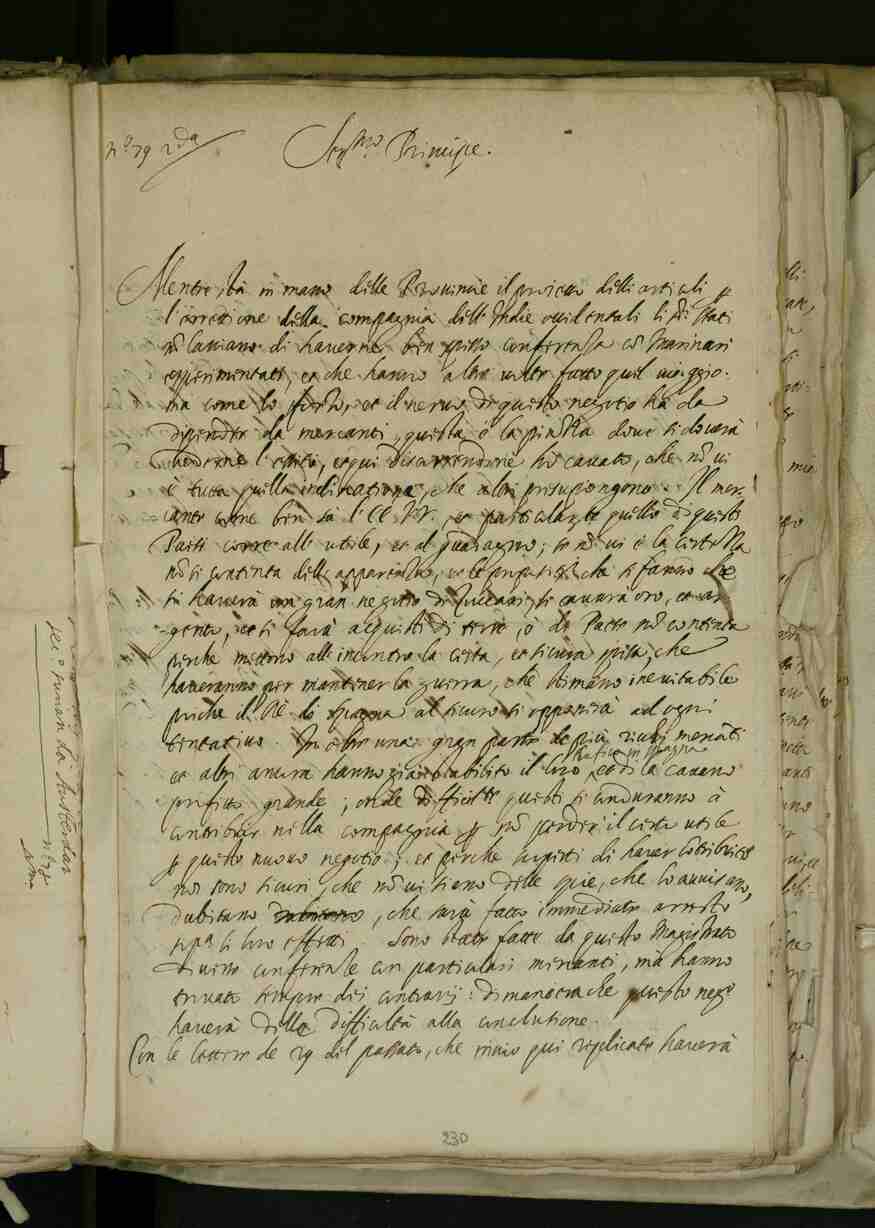 nº 79 2da
Sermo Principe.
Mentre sta in mano delle Provincie il projetto delli articoli p
l'erettione della compagnia dell'Indie occidentali li Sri Stati
nō lasciano di haverne ben spesso conferenza cō Marinari
esperimentati, et che hanno altre volte fatto quel viaggio:
ma come lo sforzo, et il nervo di questo negotio ha da
dipender da mercanti, questa è la piazza dove si doverà
vederne l'esito, et qui discorrendone hò cavato, che nō vi
è tutta quella inclinatione, che altri presupongono. Il mer-
cante come ben sà l'EE. VV., et particolarmte quello di questi
Paesi corre all'utile, et al guadagno; se nō vi è la certezza
nō si contenta dell'apparenza, et le propositioni che si fanno che
si haverà un gran negotio di Zuccari, si caverà oro, et ar-
gento, et si farà acquisti di terre, ò di Paese nō contenta
perche mettono all'incontro la certa, et sicura spesa, che
haveranno per mantener la guerra, che stimano inevitabile
perche il Rè di Spagna al sicuro si opponerà ad ogni
tentativo. In oltre una gran parte de più richi mercāti
et altri ancora hanno già stabilito il loro trafico in Spagna, et di là cavano
profitto grande; onde difficilmte questi si conduranno à
contribuir nella compagnia p nō perder il certo utile
p questo nuovo negotio; et perche scoperti di haver cōtribuito
non sono sicuri, che nō vi siano delle spie, che lo avvisano,
dubitano, che sarà fatto immediate arresto
sopa li loro effetti. Sono state fatte da questo Magistrato
diverse conferenze con particolari mercanti, ma hanno
trovato sempre dei contrarij: di maniera che questo nego
haverà delle difficoltà alla conclusione.
Con le lettere de 29 del passato, che invio qui replicate haverà
230